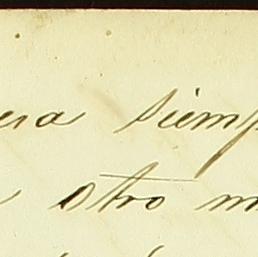 era siemp
otro m